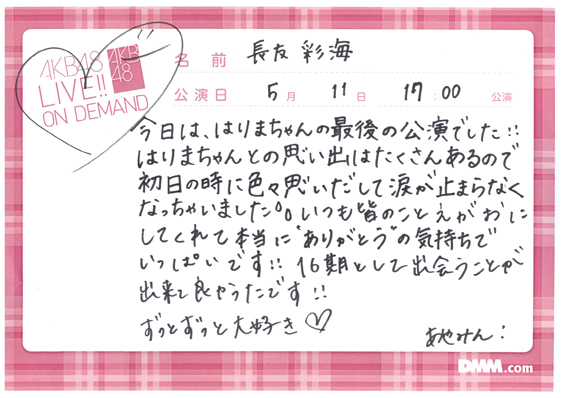 AKB48
LIVE!!
ON DEMAND
AKB
48
名前 長友彩海
公演日 5月 11日 17:00 公演
今日は、はりまちゃんの最後の公演でした!!
はりまちゃんとの思い出はたくさんあるので
初日の時に色々思いだして涙が止まらなく
なっちゃいました。。いつも皆のことえがおに
してくれて本当に"ありがとう"の気持ちで
いっぱいです!! 16期として出会うことが
出来て良かったです!!
ずっとずっと大好き♡
あやみん!
DMM.com